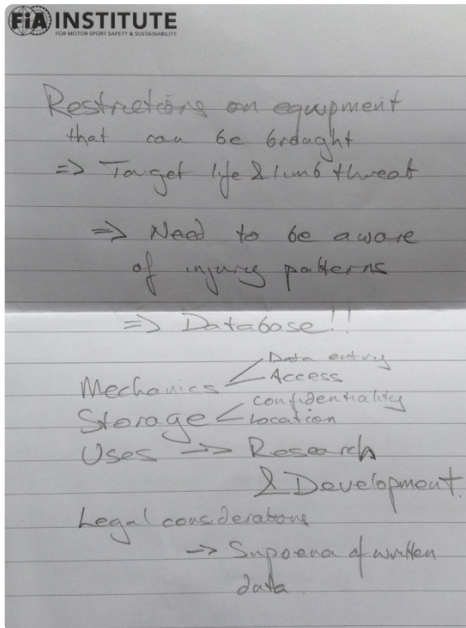 FIA INSTITUTE
FOR MOTOR SPORT SAFETY & SUSTAINABILITY
Restrictions on equipment
that can be brought
=> Target life & limb threat
=> Need to be aware
of injury patterns
=> Database!!
Data entry
Mechanics < Access
Confidentiality
Storage < Location
Uses -> Research
& Development.
Legal considerations
-> Supoena of written
data